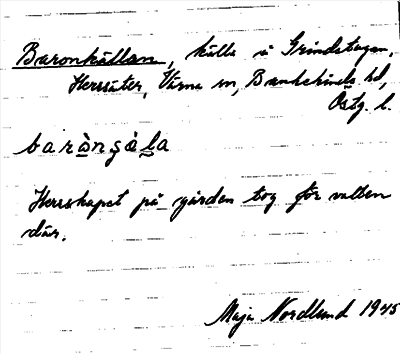 Baronkällan, källa å Grindstugan,
Herrsäter, Värna sn, Bankekinds hd,
Östg. l.
baràngàla
Herrskapet på gården tog för vatten
där.
Maja Nordlund 1945